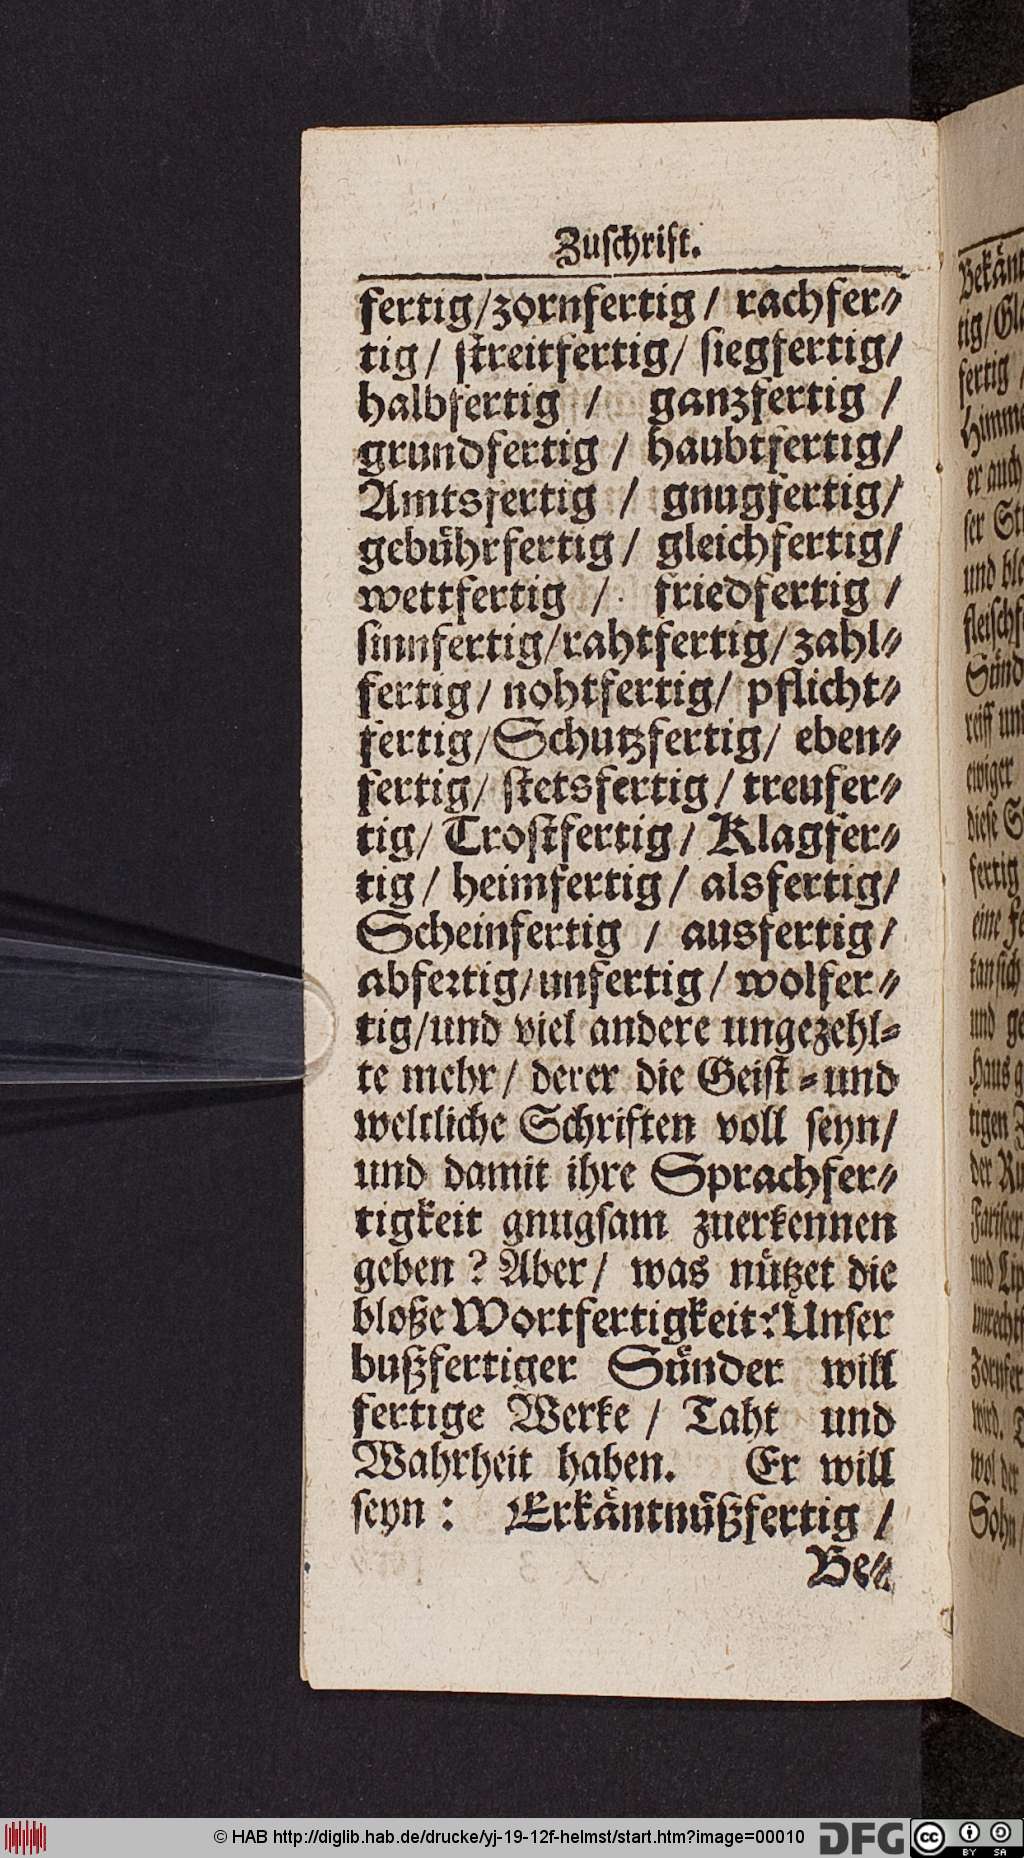 Zuſchrift.
fertig/zornfertig/ rachfer⸗
tig/ ſtreitfertig/ ſiegfertig/
halbfertig / ganzfertig /
grundfertig / haubtfertig/
Amtsfertig / gnugfertig/
gebührfertig/ gleichfertig/
wettfertig / friedfertig /
ſinnfertig/rahtfertig/zahl⸗
fertig/ nohtfertig/ pflicht⸗
fertig/Schutzfertig/ eben⸗
fertig/ ſtetsfertig/treufer⸗
tig/ Troſtfertig/ Klagfer⸗
tig/ heimfertig/ alsfertig/
Scheinfertig / ausfertig/
abfertig/unfertig/wolfer⸗
tig/und viel andere ungezehl⸗
te mehr/ derer die Geiſt⸗und
weltliche Schriften voll ſeyn/
und damit ihre Sprachfer⸗
tigkeit gnugſam zuerkennen
geben? Aber/ was nützet die
bloße Wortfertigkeit? Unſer
bußfertiger Sünder will
fertige Werke / Taht und
Wahrheit haben. Er will
ſeyn: Erkäntnüßfertig /
Be⸗
Bekänt
tig/Gl
fertig
Himme
er auch
ſer St
und ble
fleiſchf
Sünd
reiff un
ewiger
dieſe S
fertig
eine fe
kan ſich
und ge
Haus g
tigen
der Ru
Fariſeer
und Lip
unrecht
Zornfer
wird.
wol der
Sohn
© HAB http://diglib.hab.de/drucke/yj-19-12f-helmst/start.htm?image=00010
DFG
cc
BY SA